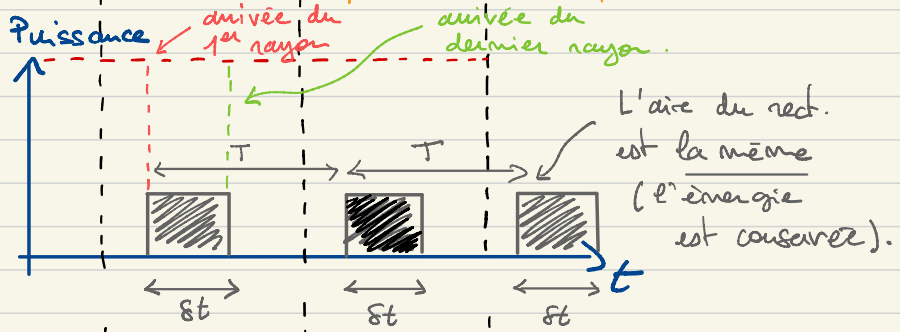 Puissance
arrivée du
1er rayon
arrivée du
dernier rayon.
L'aire du rect.
est la même
(l'énergie
est conservée).
T
T
t
δt
δt
δt